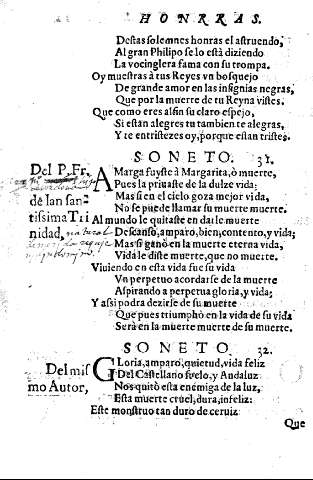 HONRRAS.
Destas solemnes honras el astruendo,
Al gran Philipo se lo està diziendo
La vocinglera fama con su trompa.
Oy muestras à tus Reyes vn bosquejo
De grande amor en las insignias negras,
Que por la muerte de tu Reyna vistes.
Que como eres alfin su claro espejo,
Si estàn alegres tu tambien te alegras,
Y te entristezes oy, porque estàn tristes.
SONETO. 31.
Del P. Fr.
de san san-
tissima Tri
nidad,
natural
AMarga fuyste à Margarita, ò muerte,
Pues la priuaste de la dulze vida:
Mas si en el cielo goza mejor vida,
No se puede llamar su muerte muerte.
Al mundo le quitaste en darle muerte
Descanso, amparo, bien, contento, y vida;
Mas si ganò en la muerte eterna vida,
Vida le diste muerte, que no muerte.
Viuiendo en esta vida fue su vida
Vn perpetuo acordarse de la muerte
Aspirando a perpetua gloria, y vida;
Y assi podra dezirse de su muerte
Que pues triumphò en la vida de su vida
Serà en la muerte muerte de su muerte.
SONETO. 32.
Del mis
mo Autor,
GLoria, amparo, quietud, vida feliz
Del Castellano suelo, y Andaluz
Nos quitò esta enemiga de la luz,
Esta muerte cruel, dura, infeliz:
Este monstruo tan duro de ceruiz
Que